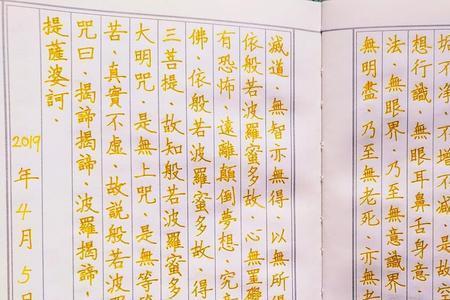 垢不淨、不增不減、是
想行識、無眼耳鼻舌身意
法、無眼界、乃至無意識界
無明盡、乃至無老死、亦無
滅道、無智亦無得、以無所得
依般若波羅蜜多故、心無罣礙
有恐怖、遠離顛倒夢想、究竟
佛、依般若波羅蜜多故、得
三菩提、故知般若波羅蜜多
大明咒、是無上咒、是無等
苦、真實不虛、故說般若波羅
咒曰、揭諦揭諦、波羅揭諦、
提薩婆訶、
2019年4月5